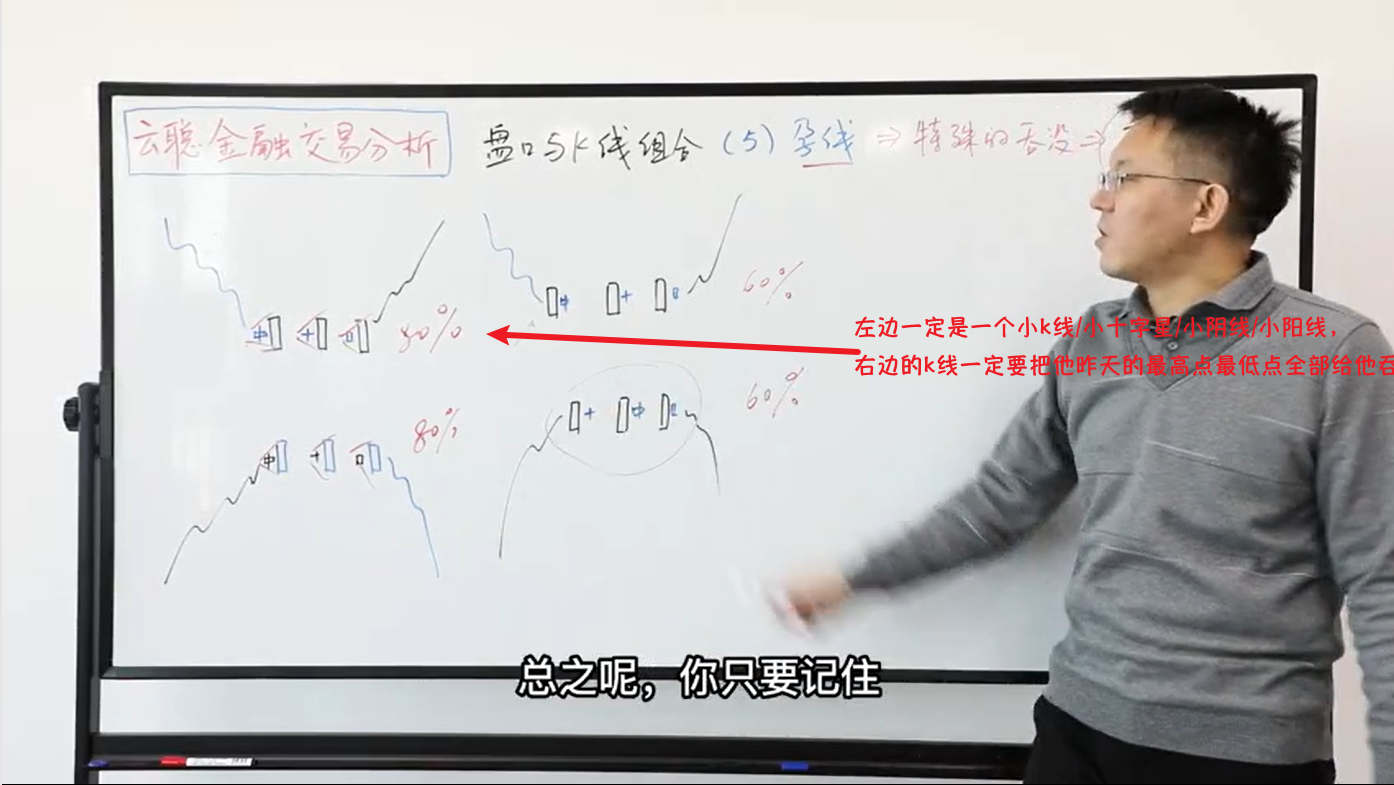 云聪金融交易分析
盘口与K线组合（5）孕线 ⇒ 特殊的吞没 ⇒
80%
60%
80%
60%
左边一定是一个小k线/小十字星/小阴线/小阳线，
右边的k线一定要把他昨天的最高点最低点全部给他吞
总之呢，你只要记住